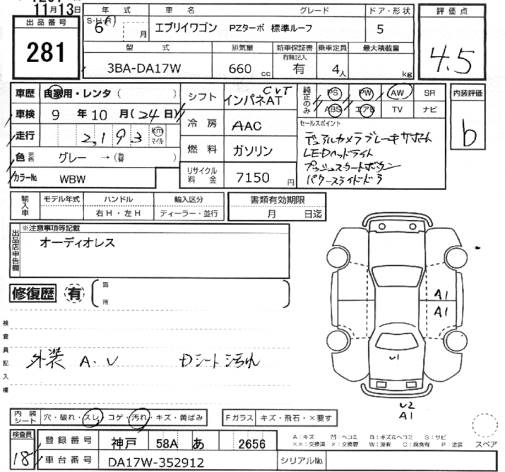 11月13日
出品番号
281
年式
S・H・R
6年 月
車名
エブリイワゴン
グレード
PZターボ 標準ルーフ
ドア・形状
5
評価点
4.5
型式
3BA-DA17W
排気量
660 cc
新車保証書
有無記入
有
乗車定員
4人
最大積載量
kg
車歴 自家用・レンタ( )
車検 9年 10月(24日)
走行 2,193 km マイル
色 グレー →( )
カラーNo WBW
シフト インパネAT CVT
冷房 AAC
燃料 ガソリン
リサイクル料金 7150円
純正のみ
PS PW AW SR
ABS エアB TV ナビ
セールスポイント
デュアルカメラブレーキサポート
LEDヘッドライト
プッシュスタートボタン
パワースライドドア
内装評価
b
輸入車
モデル年式
ハンドル
右H・左H
輸入区分
ディーラー・並行
書類有効期限
月 日迄
出品店申告欄
※注意事項等記載
オーディオレス
修復歴 有
箇所
検査員記入欄
外装 A.U Dシート汚れ
A1
A1
U1
U2
A1
内装シート
穴・破れ・スレ・コゲ・汚れ・キズ・黄ばみ
Fガラス キズ・飛石・×要す
A:キズ
スペア
検査員
18
登録番号 神戸 58A あ 2656
車台番号 DA17W-352912
シリアルNo.